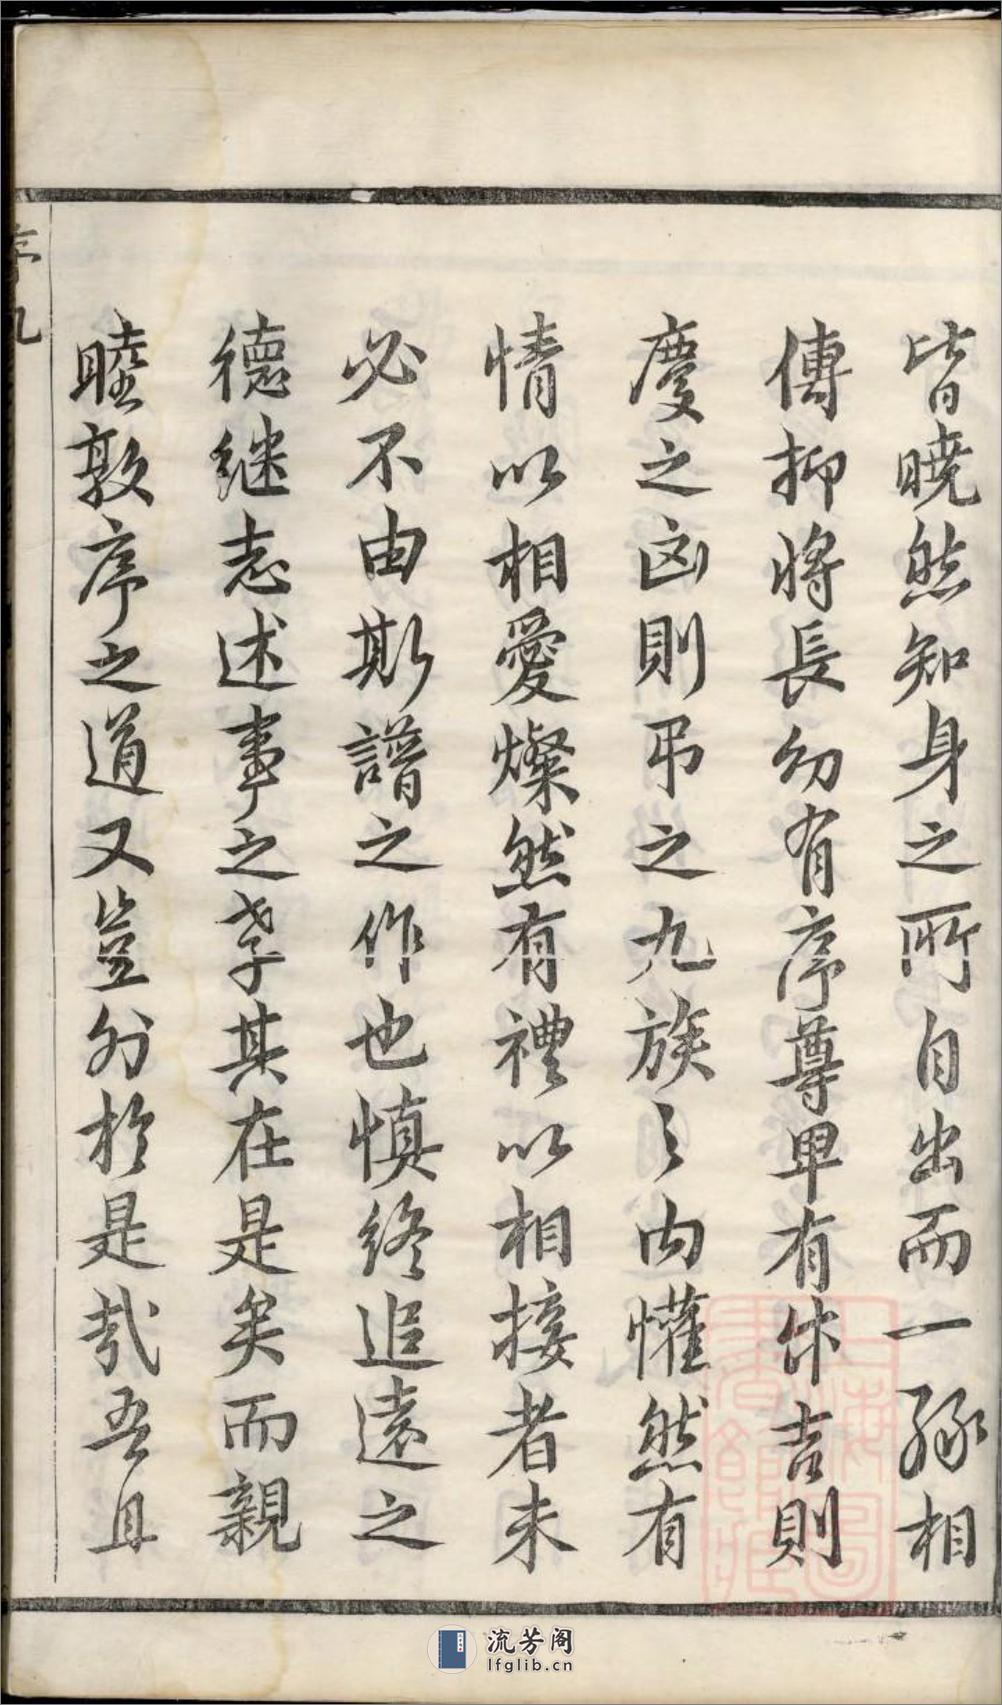 皆曉然知身之所自出而一脉相
傳抑將長幼有序尊卑有体吉則
慶之凶則弔之九族之内懽然有
情以相愛燦然有禮以相接者未
必不由斯譜之作也慎終追遠之
德继志述事之孝其在是矣而親
睦敦序之道又豈外於是哉吾且
序九
上海圖書館藏
流芳阁
lfglib.cn